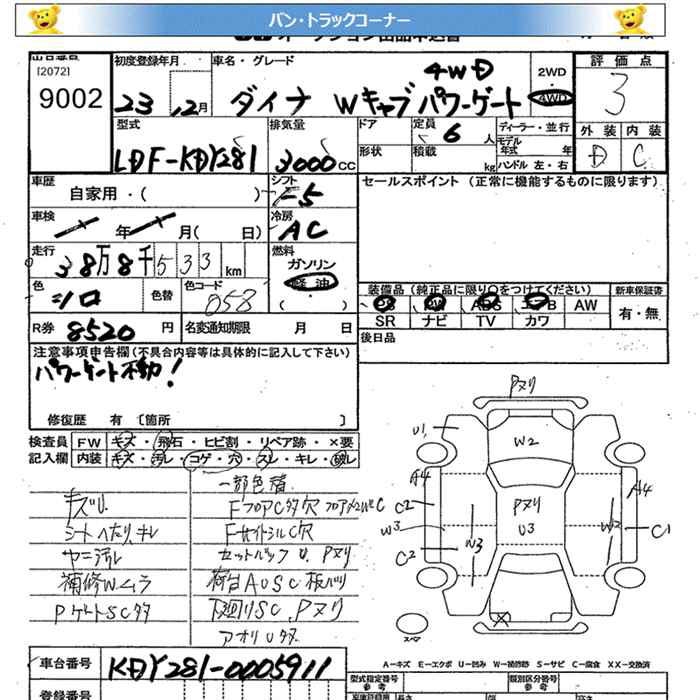 バン・トラックコーナー
出品番号
[2072]
9002
初度登録年月
23 12月
車名・グレード
4WD
ダイナ Wキャブ パワーゲート
2WD
4WD
評価点
3
外装 内装
D C
型式
LDF-KDY281
排気量
3000 CC
ドア
定員 6 人
形状
積載 kg
ディーラー・並行
モデル年式 年
ハンドル 左・右
車歴
自家用・( )
シフト
F5
セールスポイント (正常に機能するものに限ります)
車検
年 月( 日)
冷房
AC
走行
38万8千533km
燃料
ガソリン
軽油
( )
色
シロ
色替
色コード
058
装備品 (純正品に限り○をつけてください)
新車保証書
PS PW ABS エアB AW
有・無
SR ナビ TV カワ
R券 8520 円
名変通知期限 月 日
後日品
注意事項申告欄(不具合内容等は具体的に記入して下さい)
パワーゲート不動!
修復歴 有 〔箇所 〕
検査員 FW キズ・飛石・ヒビ割・リペア跡・×要
記入欄 内装 キズ・汚レ・コゲ・穴・スレ・キレ・破レ
キズU
シートヘたり、キレ
ヤニ汚レ
補修Wムラ
PゲートSC多
一部色替
FフロアC多穴
FサイドシルC穴
セットバックU、Pヌリ
荷台AUSC板バリ
下廻りSC、Pヌリ
アオリU多
Pヌリ
U1
W2
A4
C2
W3
C2
W3
Pヌリ
U3
A4
W2
C1
スペア
A-キズ E-エクボ U-凹み W-補修跡 S-サビ C-腐食 XX-交換済
車台番号 KDY281-0005911
型式指定番号
参考
類別区分番号
参考
登録番号
長さ
幅
高さ